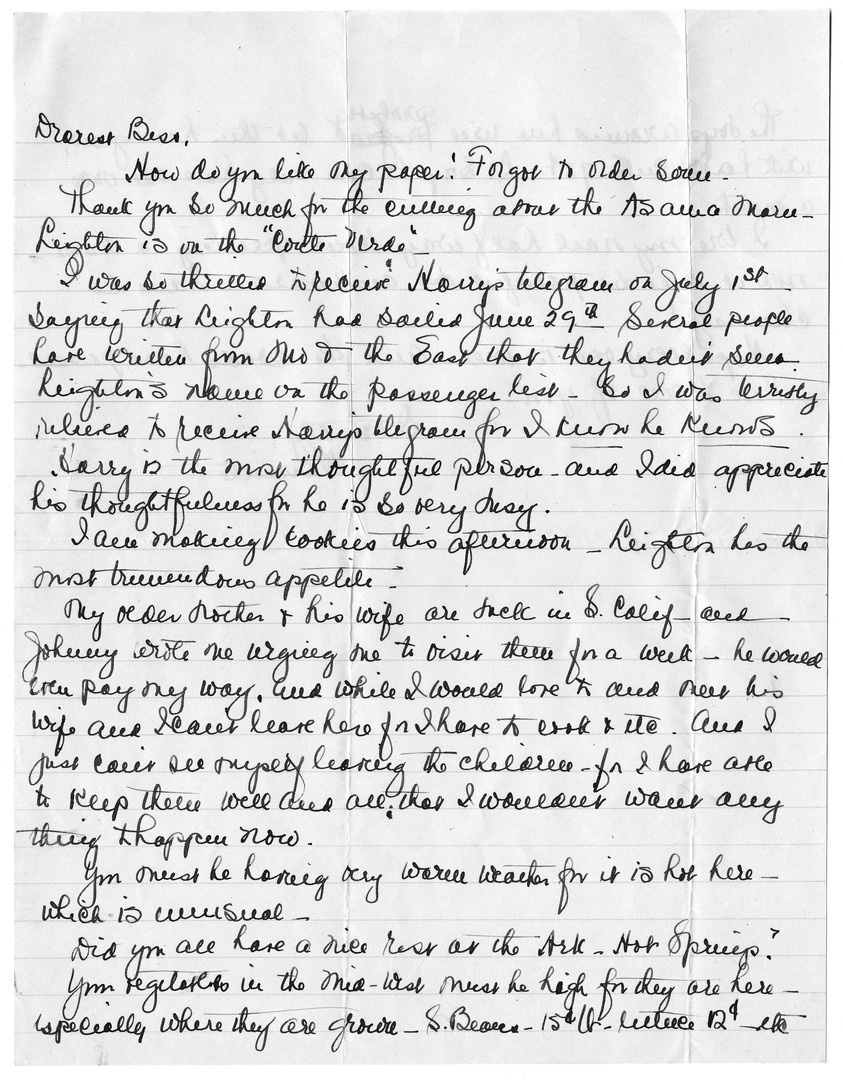 Dearest Bess,
How do you like my paper! Forgot to order some -
Thank you so much for the cutting about the Asama Maru -
Leighton is on the "Conte Verde" -
I was so thrilled to receive Harry's telegram on July 1st
saying that Leighton had sailed June 29th. Several people
have written from Mo & the East that they hadn't seen
Leighton's name on the passenger list - So I was terribly
relieved to receive Harry's telegram for I know he knows.
Harry is the most thoughtful person - and I did appreciate
his thoughtfulness for he is so very busy.
I am making cookies this afternoon - Leighton has the
most tremendous appetite -
My older brother & his wife are back in S. Calif - and -
Johnny wrote me urging me to visit them for a week - he would
even pay my way, and while I would love to and meet his
wife and I can't leave here for I have to cook & etc. And I
just can't see myself leaving the children - for I have able
to keep them well and all, that I wouldn't want any
thing to happen now.
You must be having very warm weather for it is hot here -
which is unusual -
Did you all have a nice rest at the Ark - Hot Springs?
Your vegetables in the Mid-West must be high for they are here -
especially where they are grown - S. Beans - 15¢ lb - lettuce 12¢ - etc